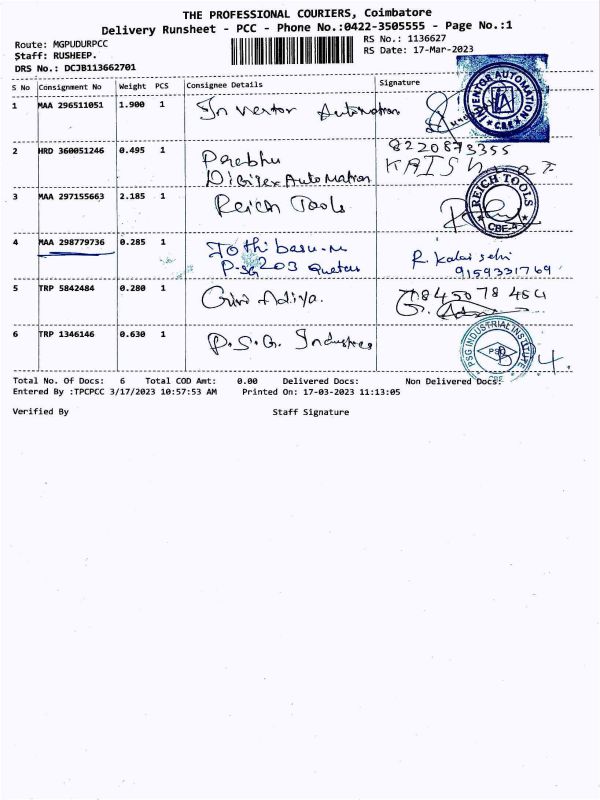 THE PROFESSIONAL COURIERS, Coimbatore
Delivery Runsheet - PCC - Phone No.:0422-3505555 - Page No.:1
Route: MGPUDURPCC
Staff: RUSHEEP.
DRS No.: DCJB113662701
RS No.: 1136627
RS Date: 17-Mar-2023
S No Consignment No Weight PCS Consignee Details Signature
1 MAA 296511051 1.900 1 Inventor Automation
INVENTOR AUTOMATION
* CBE *
2 HRD 360051246 0.495 1 Prabhu 8220873355
Automation
3 MAA 297155663 2.185 1 Reich Tools
REICH TOOLS
CBE-4
4 MAA 298779736 0.285 1 Jothibasu.m R. Kalai selvi
P.SG 203 9159331769
5 TRP 5842484 0.280 1
6 TRP 1346146 0.630 1 P.S.G. Industries
PSG INDUSTRIAL INSTITUTE
PSG
CBE
Total No. Of Docs: 6 Total COD Amt: 0.00 Delivered Docs: Non Delivered Docs:
Entered By :TPCPCC 3/17/2023 10:57:53 AM Printed On: 17-03-2023 11:13:05
Verified By Staff Signature